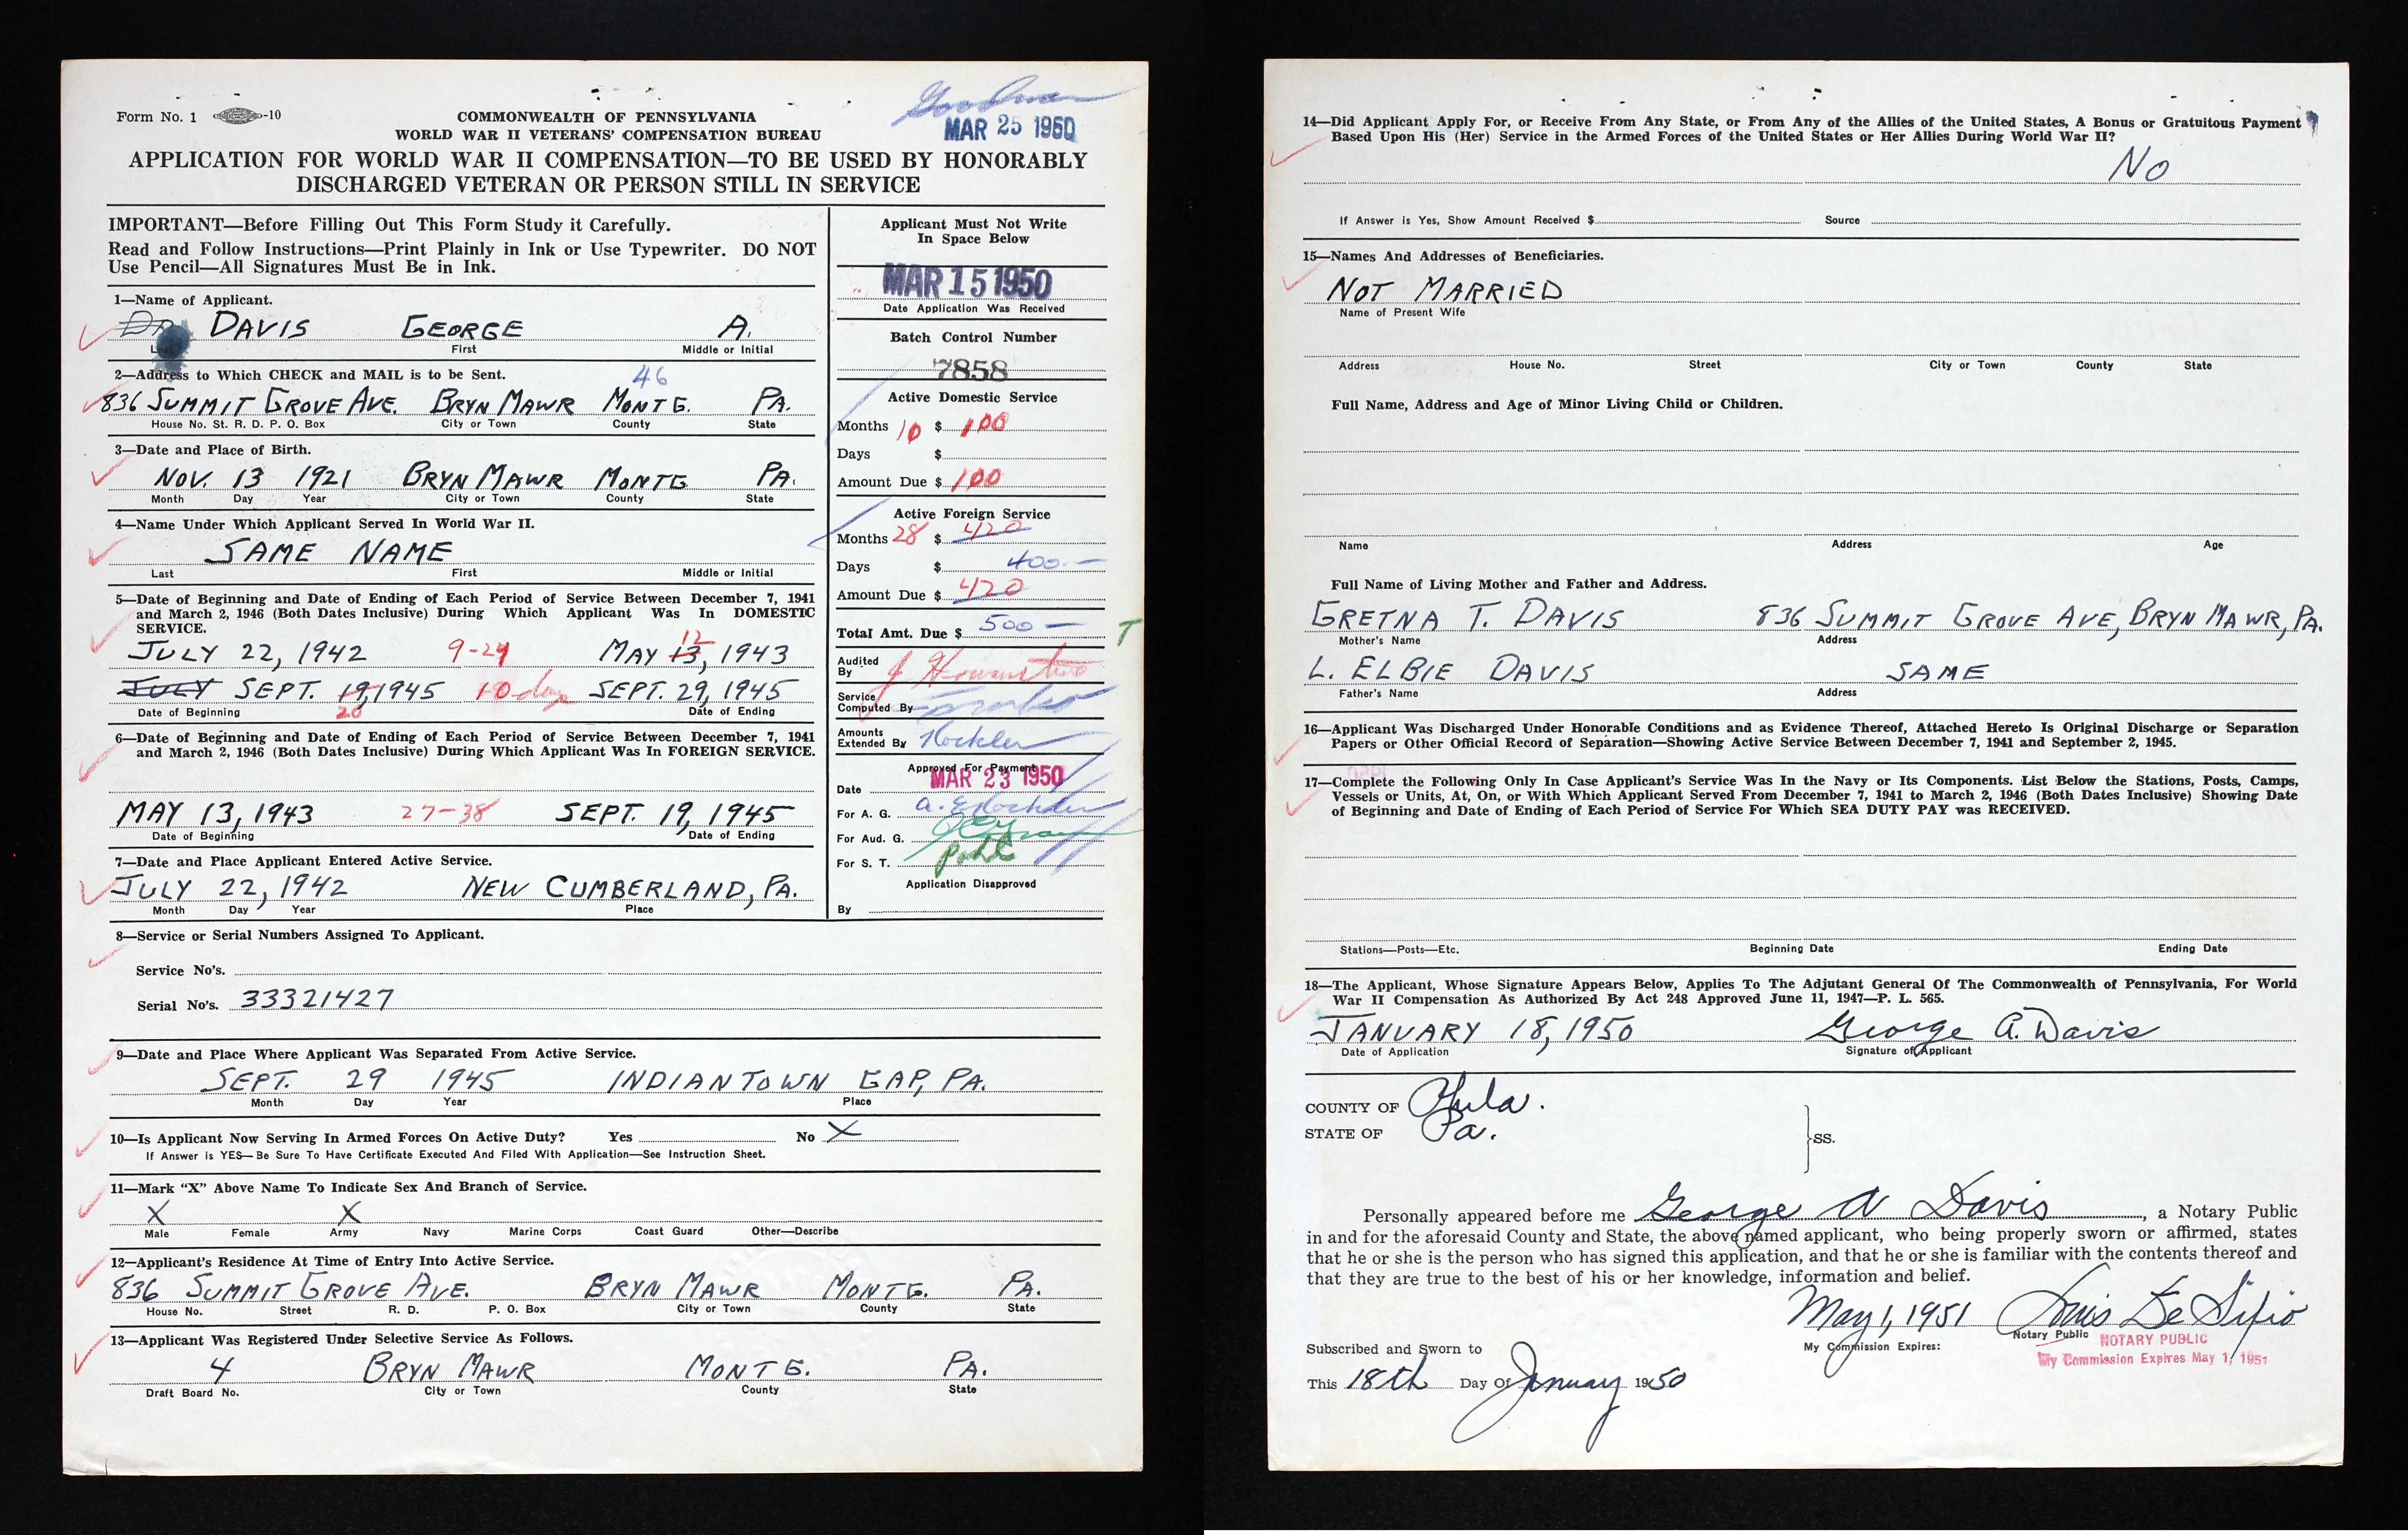 Form No. 1 -10
COMMONWEALTH OF PENNSYLVANIA
WORLD WAR II VETERANS' COMPENSATION BUREAU
MAR 25 1950
APPLICATION FOR WORLD WAR II COMPENSATION—TO BE USED BY HONORABLY
DISCHARGED VETERAN OR PERSON STILL IN SERVICE
IMPORTANT—Before Filling Out This Form Study it Carefully.
Read and Follow Instructions—Print Plainly in Ink or Use Typewriter. DO NOT
Use Pencil—All Signatures Must Be in Ink.
1—Name of Applicant.
DAVIS GEORGE A.
Last First Middle or Initial
2—Address to Which CHECK and MAIL is to be Sent.
46
836 SUMMIT GROVE AVE. BRYN MAWR MONTG. PA.
House No. St. R. D. P. O. Box City or Town County State
3—Date and Place of Birth.
NOV. 13 1921 BRYN MAWR MONTG PA.
Month Day Year City or Town County State
4—Name Under Which Applicant Served In World War II.
SAME NAME
Last First Middle or Initial
5—Date of Beginning and Date of Ending of Each Period of Service Between December 7, 1941
and March 2, 1946 (Both Dates Inclusive) During Which Applicant Was In DOMESTIC
SERVICE.
12
JULY 22, 1942 9-24 MAY 13, 1943
JULY SEPT. 19, 1945 10 day SEPT. 29, 1945
20
Date of Beginning Date of Ending
6—Date of Beginning and Date of Ending of Each Period of Service Between December 7, 1941
and March 2, 1946 (Both Dates Inclusive) During Which Applicant Was In FOREIGN SERVICE.
MAY 13, 1943 27-38 SEPT. 19, 1945
Date of Beginning Date of Ending
7—Date and Place Applicant Entered Active Service.
JULY 22, 1942 NEW CUMBERLAND, PA.
Month Day Year Place
Applicant Must Not Write
In Space Below
MAR 15 1950
Date Application Was Received
Batch Control Number
7858
Active Domestic Service
Months 10 $ 100
Days $
Amount Due $ 100
Active Foreign Service
Months 28 $ 420
Days $ 400.—
Amount Due $ 420
Total Amt. Due $ 500 — T
Audited
By
Service
Computed By
Amounts
Extended By Hockler
Approved For Payment
Date MAR 23 1950
For A. G.
For Aud. G.
For S. T.
Application Disapproved
By
8—Service or Serial Numbers Assigned To Applicant.
Service No's.
Serial No's. 33321427
9—Date and Place Where Applicant Was Separated From Active Service.
SEPT. 29 1945 INDIANTOWN GAP, PA.
Month Day Year Place
10—Is Applicant Now Serving In Armed Forces On Active Duty? Yes No X
If Answer is YES—Be Sure To Have Certificate Executed And Filed With Application—See Instruction Sheet.
11—Mark "X" Above Name To Indicate Sex And Branch of Service.
X X
Male Female Army Navy Marine Corps Coast Guard Other—Describe
12—Applicant's Residence At Time of Entry Into Active Service.
836 SUMMIT GROVE AVE. BRYN MAWR MONTG. PA.
House No. Street R. D. P. O. Box City or Town County State
13—Applicant Was Registered Under Selective Service As Follows.
4 BRYN MAWR MONTG. PA.
Draft Board No. City or Town County State
14—Did Applicant Apply For, or Receive From Any State, or From Any of the Allies of the United States, A Bonus or Gratuitous Payment
Based Upon His (Her) Service in the Armed Forces of the United States or Her Allies During World War II?
NO
If Answer is Yes, Show Amount Received $ Source
15—Names And Addresses of Beneficiaries.
NOT MARRIED
Name of Present Wife
Address House No. Street City or Town County State
Full Name, Address and Age of Minor Living Child or Children.
Name Address Age
Full Name of Living Mother and Father and Address.
GRETNA T. DAVIS 836 SUMMIT GROVE AVE, BRYN MAWR, PA.
Mother's Name Address
L. ELBIE DAVIS SAME
Father's Name Address
16—Applicant Was Discharged Under Honorable Conditions and as Evidence Thereof, Attached Hereto Is Original Discharge or Separation
Papers or Other Official Record of Separation—Showing Active Service Between December 7, 1941 and September 2, 1945.
17—Complete the Following Only In Case Applicant's Service Was In the Navy or Its Components. List Below the Stations, Posts, Camps,
Vessels or Units, At, On, or With Which Applicant Served From December 7, 1941 to March 2, 1946 (Both Dates Inclusive) Showing Date
of Beginning and Date of Ending of Each Period of Service For Which SEA DUTY PAY was RECEIVED.
Stations—Posts—Etc. Beginning Date Ending Date
18—The Applicant, Whose Signature Appears Below, Applies To The Adjutant General Of The Commonwealth of Pennsylvania, For World
War II Compensation As Authorized By Act 248 Approved June 11, 1947—P. L. 565.
JANUARY 18, 1950 George A. Davis
Date of Application Signature of Applicant
COUNTY OF Phila.
STATE OF Pa.
SS.
Personally appeared before me George A Davis, a Notary Public
in and for the aforesaid County and State, the above named applicant, who being properly sworn or affirmed, states
that he or she is the person who has signed this application, and that he or she is familiar with the contents thereof and
that they are true to the best of his or her knowledge, information and belief.
May 1, 1951 Louis De Sipio
My Commission Expires: Notary Public NOTARY PUBLIC
My Commission Expires May 1, 1951
Subscribed and Sworn to
This 18th Day Of January 1950